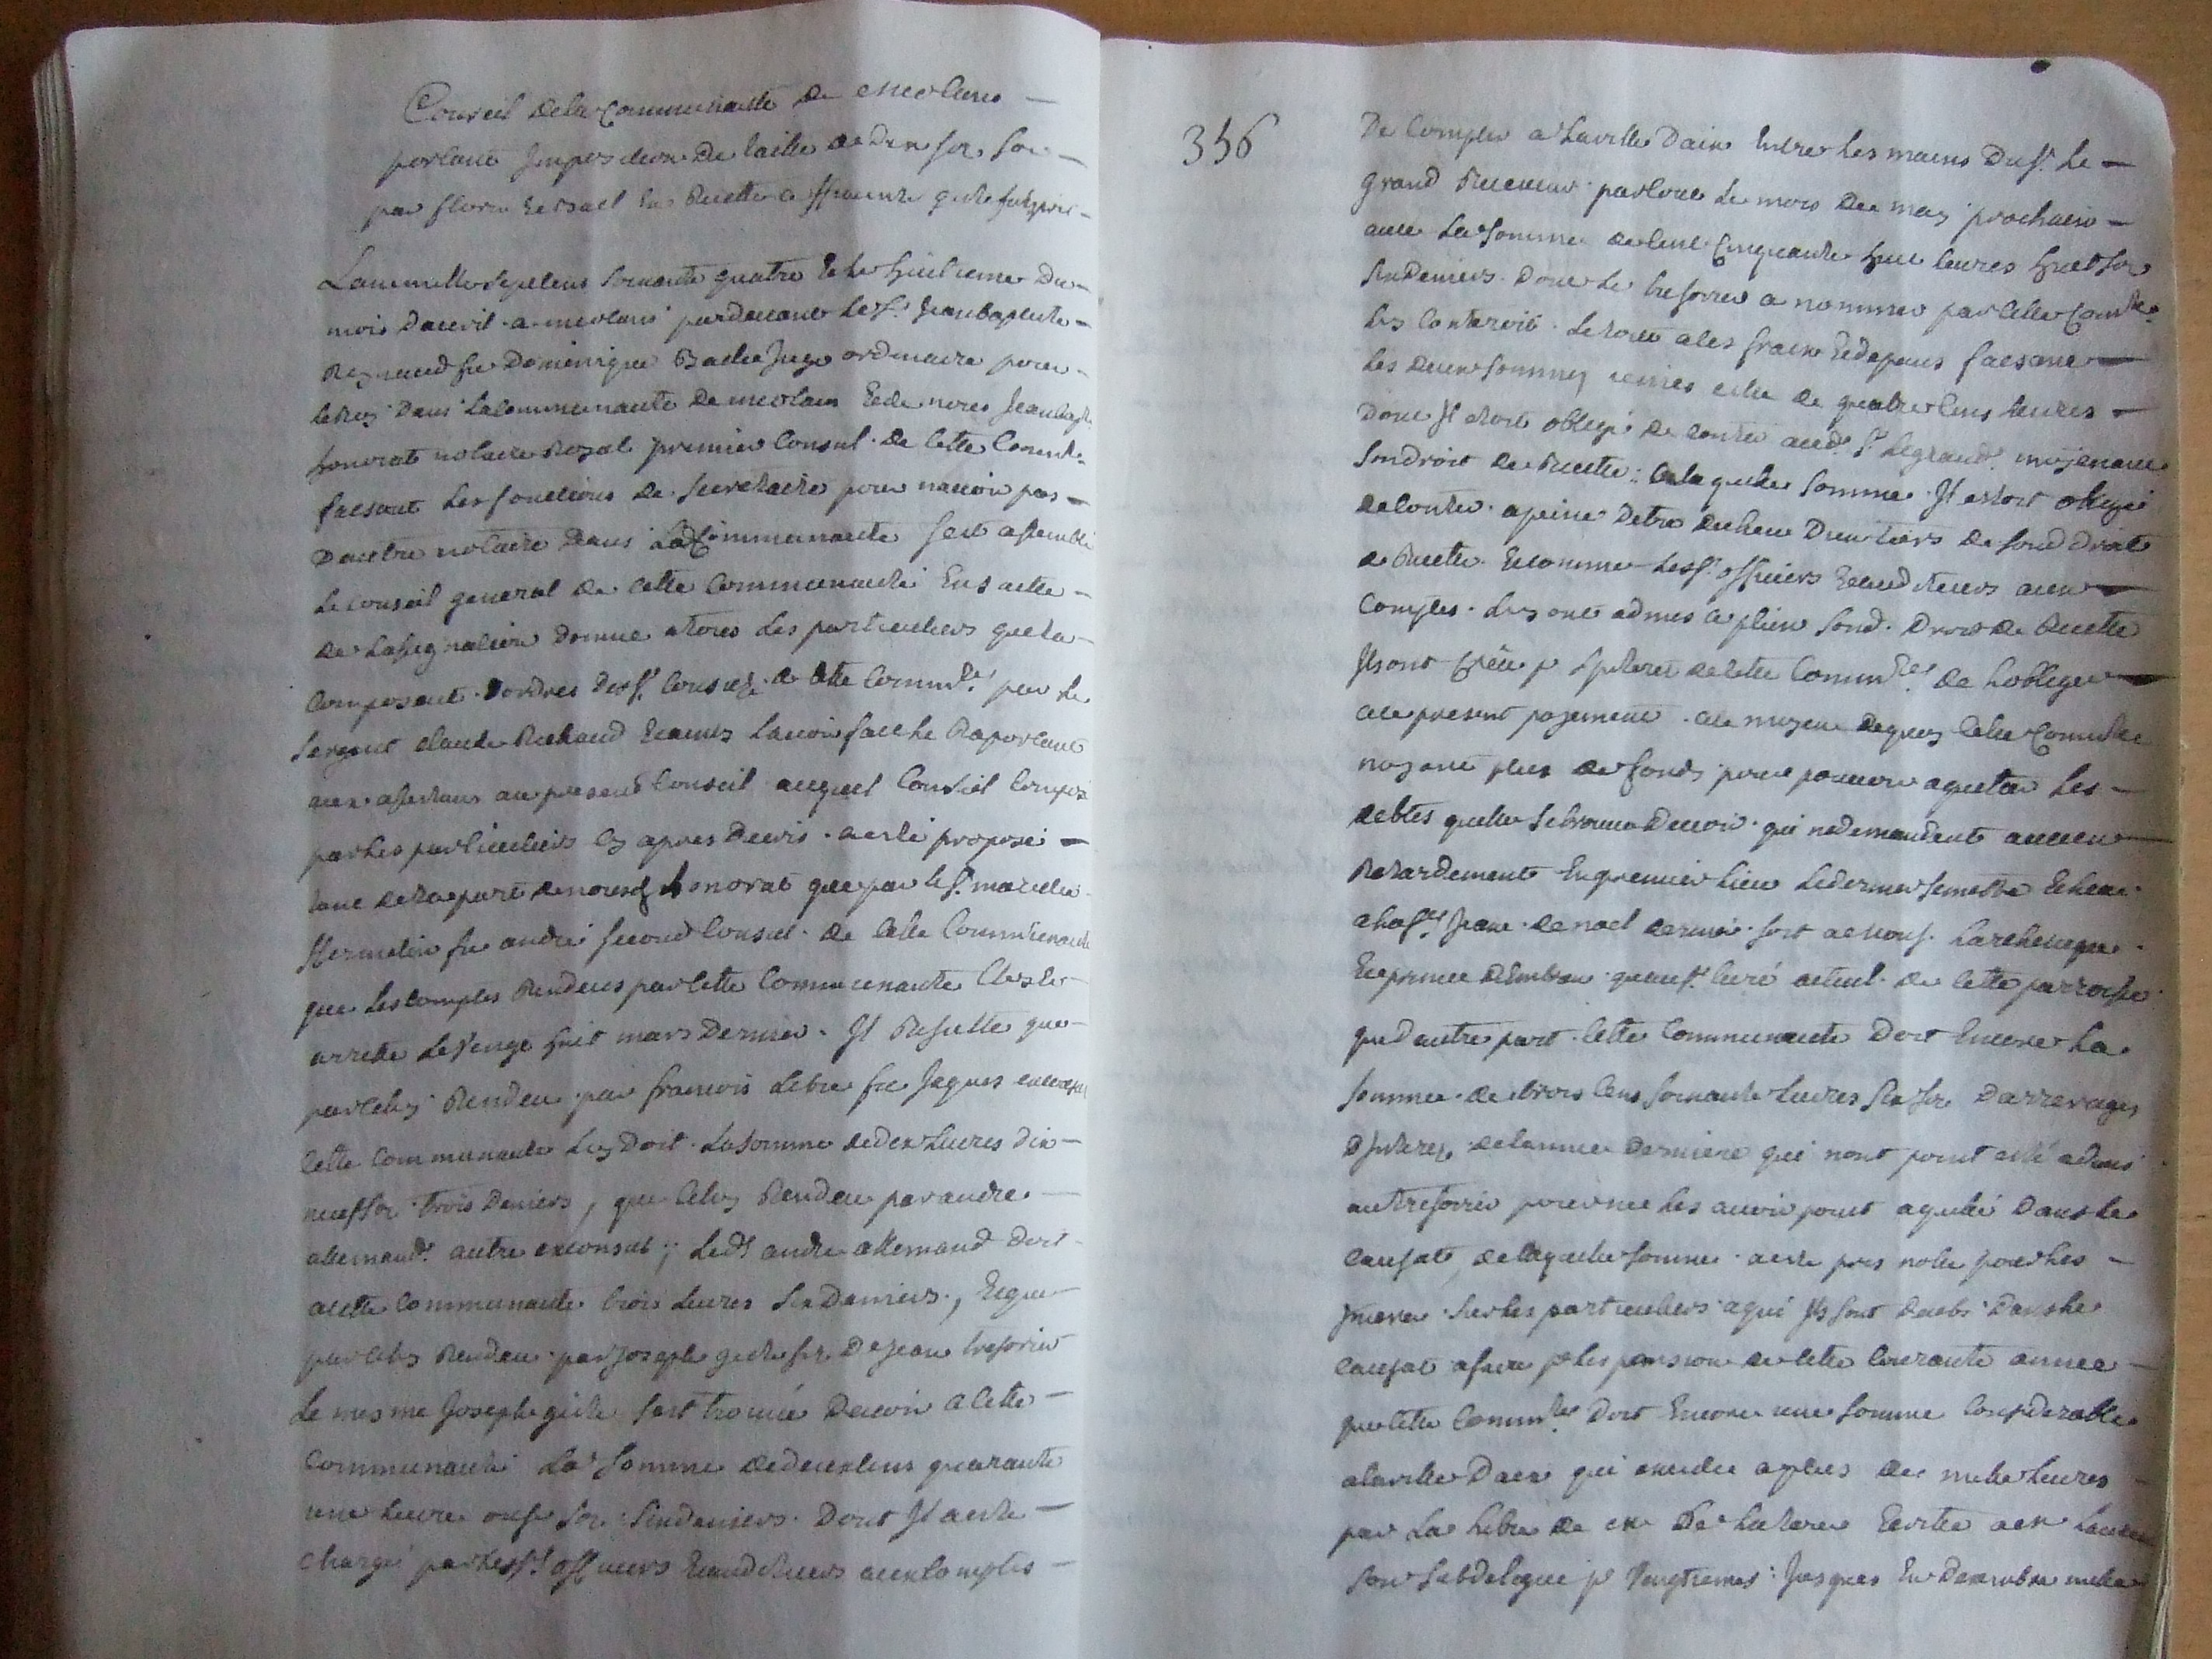 Conseil dela Communauté de meolans
portant Imposition de taille de dix sols
par florin
Lan mille sept cens soixante quatre et le huitieme du
mois davril a meolans pardevant le Sr Jean baptiste
Reynaud fu Dominique Baille Juge ordinaire pour
le Roy Dans La communauté de meolans Et de nous Jean bapt.
honorat notaire Royal premier Consul de Cette Comunté
faisant Les fonctions de secretaire pour navoir pas
Dautre notaire Dans Lad Communauté sest assemblé
Le conseil general de cette Communauté Ensuitte
de Lassignation Donnée a tous Les particuliers que la
Composent Dordres des Srs Consuls de cette Commté par le
sergent claude Richaud Er ainsy Lavoir fait le Raportant
aux assistans au present Conseil auquel Conseil Composé
par Les particuliers Cy apres Ecrits a esté proposé
tant de la part de nousd honorat que par le Sr
hermelin fu andré second Consul de Cette Communauté
que Les comptes Rendeus par Cette Communauté
arretté Le vingt huit mars Dernier. Il Resulte que
par Celuy Rendeu par francois Lebre fu Jaques
Cette Communauté Luy Doit La somme de dix Livres dix
neuf sols trois Deniers, que Celuy Rendeu par andre
allemand autre exconsul; Led andre allemand Doit
a cette Communauté trois Livres six Deniers, Er que
par Celuy Rendeu par Joseph gilte fu De Jean tresorier
Le mesme Joseph gilte sest trouvé Devoir a Cette
Communauté La somme de deux Cens quarante
une Livre onse sols six deniers Dont Il a esté
chargé par Les Srs officiers Er auditeurs aux Comptes
356
De Compter a La ville Daix Entre Les mains Du Sr Le
grand Receveur par tout Le mois de may prochain
avec La somme de Cent Cinquante huit Livres huit sols
six deniers Dont Le tresorier a nommer par Cette Comté
Les deux sommes unies celle de quatre Cens Livres
Dont Il etoit obligé de Conter aud Sr Legrand moyenant
son droit de Recette: de laquelle somme Il estoit obligé
de Conter a peine Detre decheu Dun tiers de soud Droit
de Recette Er comme Les Srs officiers Er auditeurs aux
Comptes Luy ont admis a plein soud Droit de Recette
Ils ont creu pr Linteret de Cette Commté de Lobliger
au present payement au moyen dequoy Cette Comunté
nayant plus de fonds pour pouvoir aquiter Les
debtes quelle se trouve Devoir qui ne demandent aucun
Retardement En premier Lieu Le dernier semestre Echeu
a la St Jean de noel dernier soit a monsr Larcheveque
Er prince dEmbrun quau Sr Curé actuel de Cette parroisse
que Dautre part Cette Communauté Doit Encore La
somme de trois Cens soixante Livres six sols Darrerages
Dinterets de Lannée Derniere qui nont point esté admis
au tresorier pour ne Les avoir point aquité Dans Le
Casat, de laquelle somme a esté pris notte pour Les
sur Les particuliers a qui Ils sont deubs Dans Le
Casat a faire pr Les pension de Cette Courante année
que Cette Commté Doit Encore une somme Considerable
a La ville Daix qui excede a plus de mille Livres
par La Lettre de
son subdelegué pr vingtiemes Jusques En Decembre mille